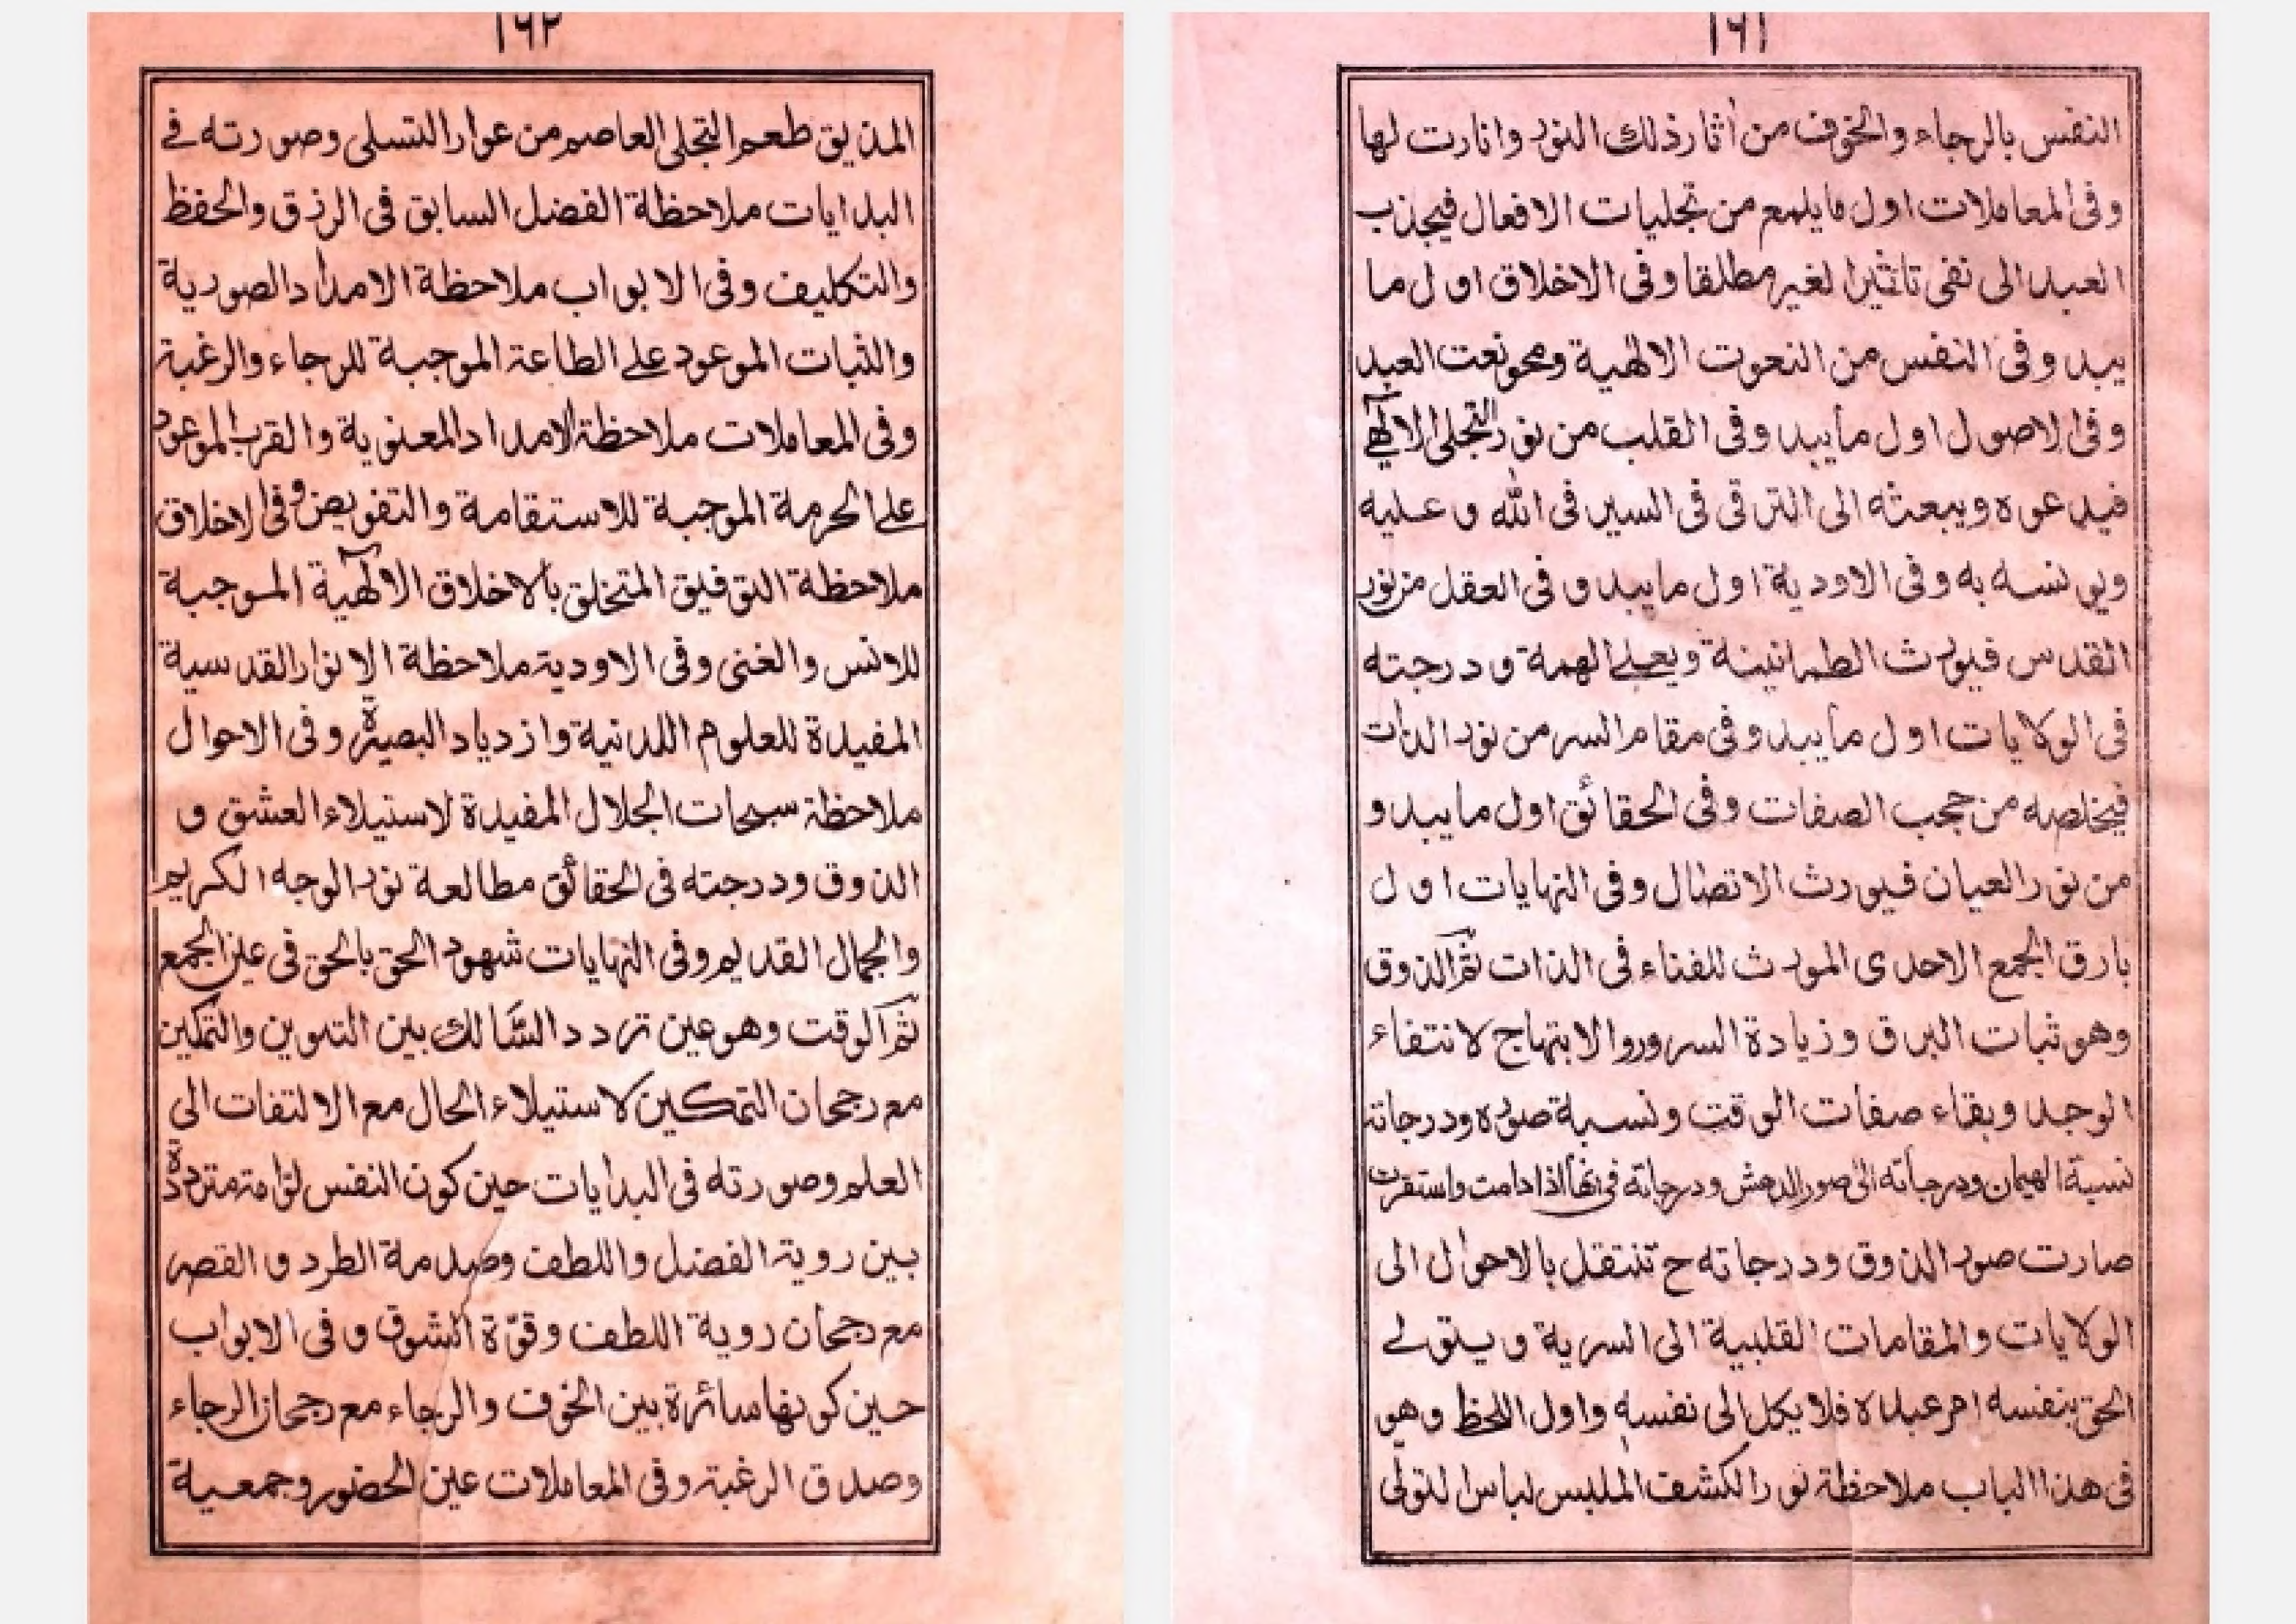 ١٦١
النفس بالرجاء والخوف من أثار ذلك النور وانارت لها
وفى المعاملات اول ما يلمع من تجليات الافعال فيجذب
العبد الى نفى تاثير الغير مطلقا وفى الاخلاق اول ما
يبد وفى النفس من النعوت الالهية ومحو نعت العبد
وفى الاصول اول ما يبد وفى القلب من نور التجلى الالهى
فيدعوه ويبعثه الى الترقى فى السير فى الله و عليه
ويونسه به وفى الاودية اول ما يبد و فى العقل من نور
القدس فيورث الطمانينة ويعلى الهمة و درجته
فى الولايات اول ما يبد وفى مقام السر من نور الذات
فيخلصه من حجب الصفات وفى الحقائق اول ما يبد و
من نور العيان فيورث الاتصال وفى النهايات اول
بارق الجمع الاحدى المورث للفناء فى الذات ثم الذوق
وهو ثبات البرق وزيادة السرور والابتهاج لانتفاء
الوجد وبقاء صفات الوقت ونسبة صوره ودرجاته
نسبة الهيمان ودرجاته الى صور الدهش ودرجاته فى انها اذا دامت واستقرت
صارت صور الذوق ودرجاته ح تنتقل بالاحوال الى
الولايات والمقامات القلبية الى السرية و يتولى
الحق بنفسه امر عبده فلا يكل الى نفسه واول اللحظ وهو
فى هذا الباب ملاحظة نور الكشف الملبس لباس التولى
١٦٢
المذيق طعم التجلى العاصم من عوار التسلى وصورته فى
البدايات ملاحظة الفضل السابق فى الرزق والحفظ
والتكليف وفى الابواب ملاحظة الامداد الصورية
والثبات الموعود على الطاعة الموجبة للرجاء والرغبة
وفى المعاملات ملاحظة الامداد المعنوية والقرب الموعود
على الحرمة الموجبة للاستقامة والتفويض وفى الاخلاق
ملاحظة التوفيق المتخلق بالاخلاق الالهية الموجبة
للانس والغنى وفى الاودية ملاحظة الانوار القدسية
المفيدة للعلوم اللدنية وازدياد البصيرة وفى الاحوال
ملاحظة سبحات الجلال المفيدة لاستيلاء العشق و
الذوق ودرجته فى الحقائق مطالعة نور الوجه الكريم
والجمال القديم وفى النهايات شهود الحق بالحق فى عين الجمع
ثم الوقت وهو عين تردد السالك بين التلوين والتمكين
مع رجحان التمكين لاستيلاء الحال مع الالتفات الى
العلم وصورته فى البدايات حين كون النفس لوامة مترددة
بين روية الفضل واللطف وصدمة الطرد و القصر
مع رجحان روية اللطف وقوّة الشوق و فى الابواب
حين كونها سائرة بين الخوف والرجاء مع رجحان الرجاء
وصدق الرغبة وفى المعاملات عين الحضور وجمعية